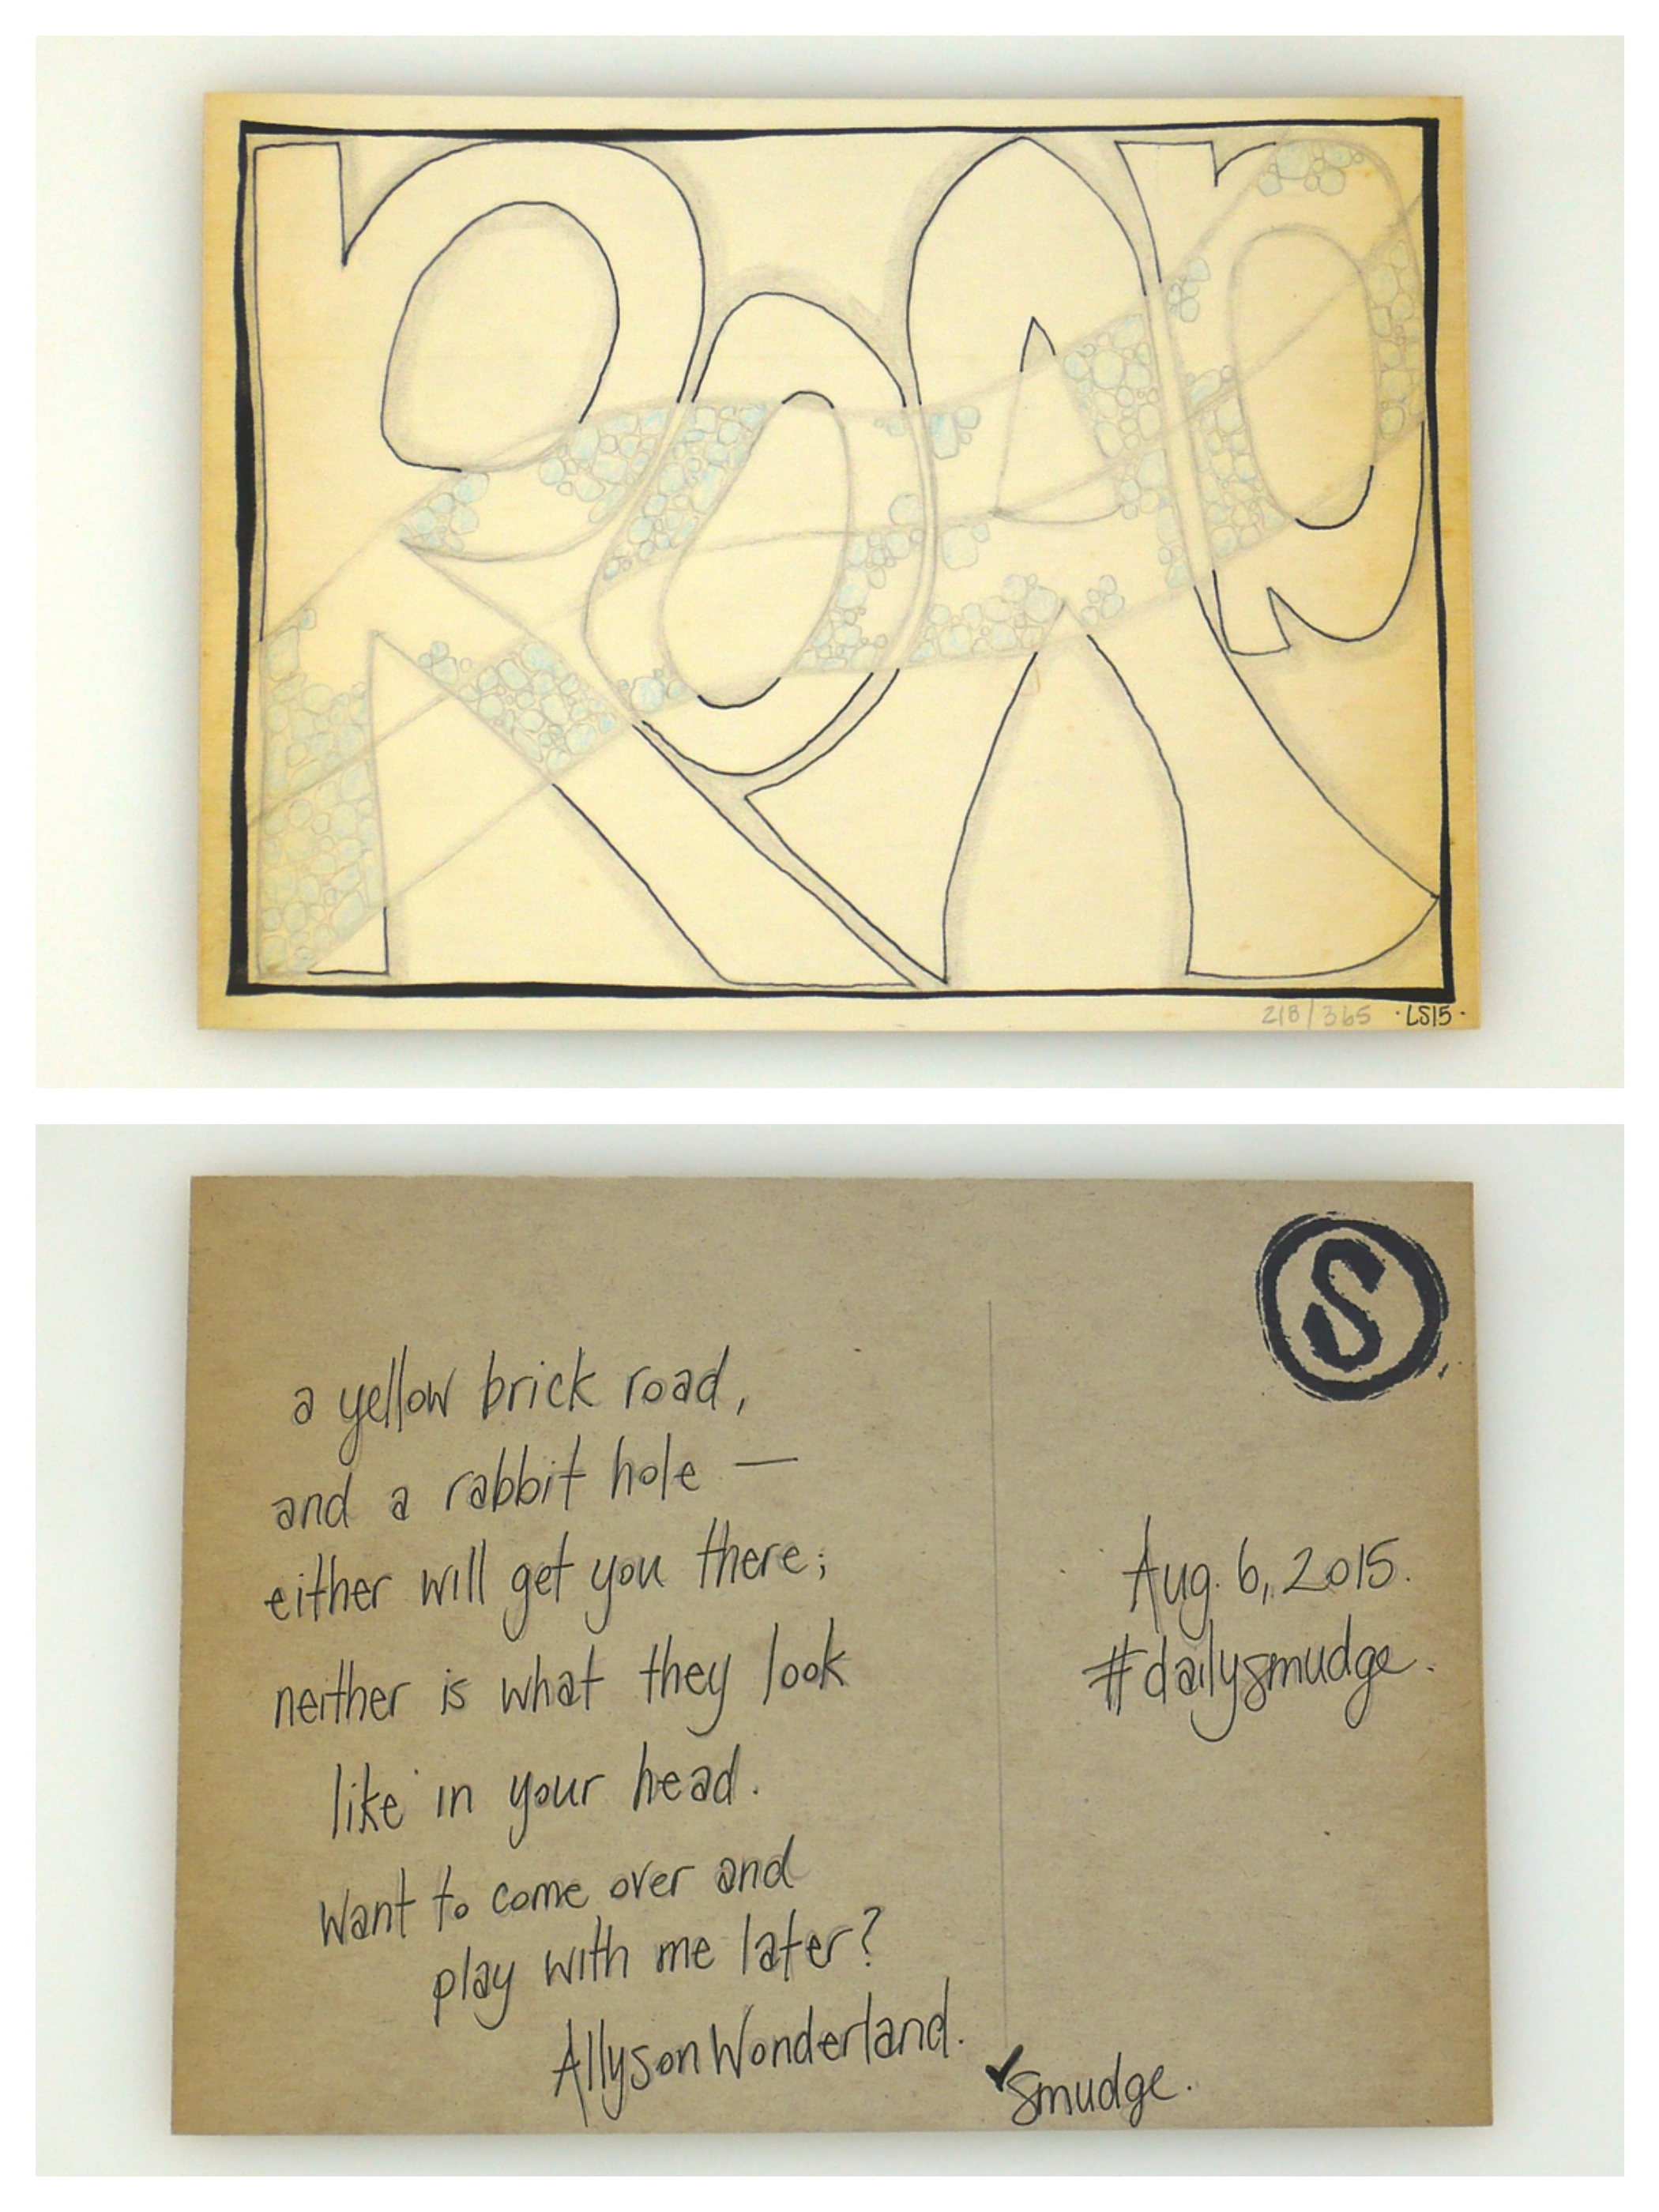 ROAD
218/365 ·LS15·
S
a yellow brick road,
and a rabbit hole —
either will get you there;
neither is what they look
like in your head.
Want to come over and
play with me later?
Allyson Wonderland.
Aug. 6, 2015.
#dailysmudge.
✓smudge.